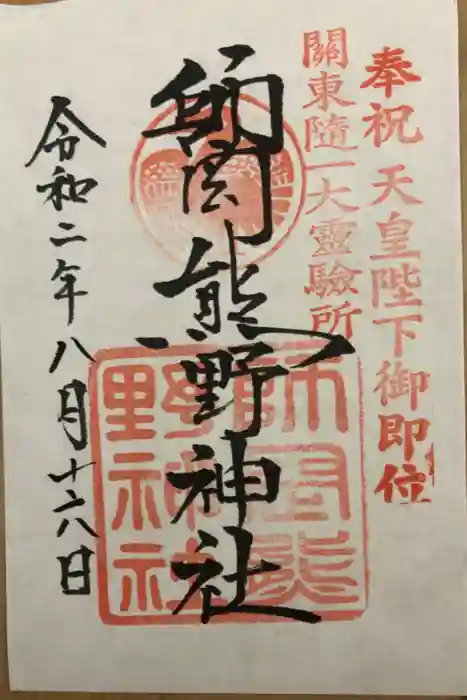 奉祝 天皇陛下御即位
關東隨一大靈驗所
師岡熊野神社
令和二年八月十六日
師岡熊
野神社